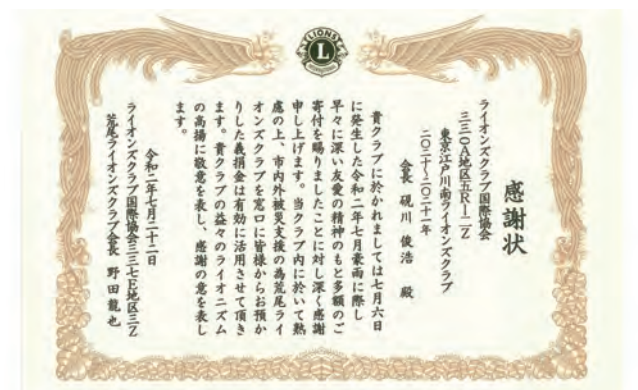 LIONS
L
感謝状
ライオンズクラブ国際協会
三三〇A地区五R―二Z
東京江戸川南ライオンズクラブ
二〇二十~二〇二十一年
会長 硯川 俊浩 殿
貴クラブに於かれましては七月六日
に発生した令和二年七月豪雨に際し
早々に深い友愛の精神のもと多額のご
寄付を賜りましたことに対し深く感謝
申し上げます。当クラブ内に於いて熟
慮の上、市内外被災支援の為荒尾ライ
オンズクラブを窓口に皆様からお預か
りした義捐金は有効に活用させて頂き
ます。貴クラブの益々のライオニズム
の高揚に敬意を表し、感謝の意を表し
ます。
令和二年七月二十二日
ライオンズクラブ国際協会三三七E地区三Z
荒尾ライオンズクラブ会長 野田龍也